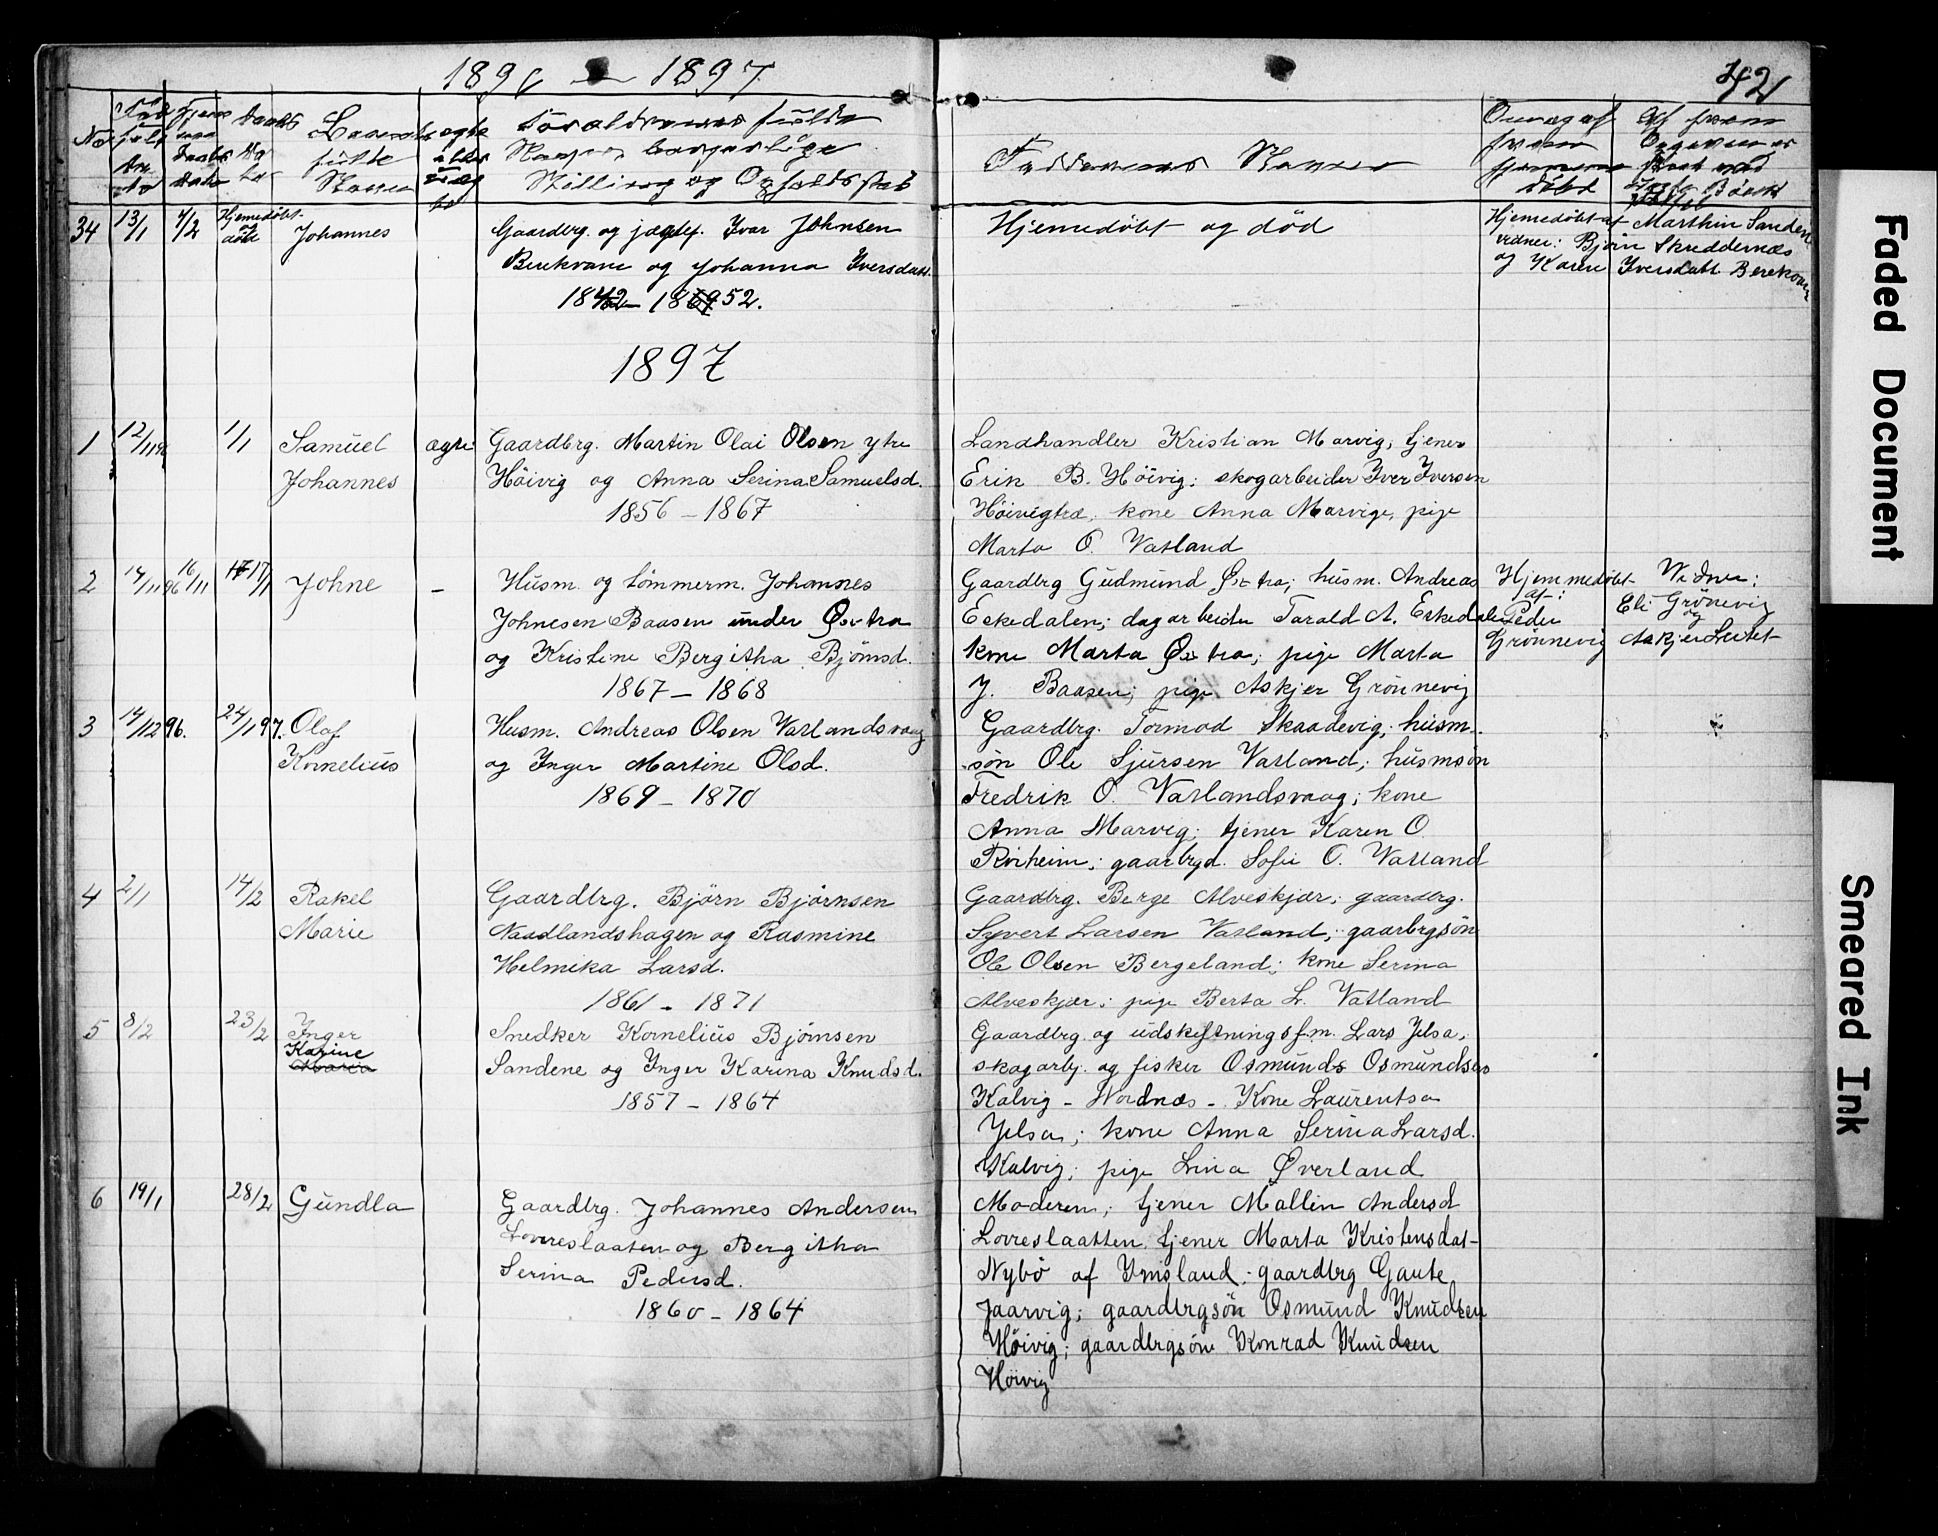 1896 – 1897
42
No
Barnets
fulde
Navn
ægte
eller
uægte
Forældrenes fulde
Navn, borgerlige
Stilling og Opholdssted
Faddernes Navne
34 13/1 4/2 Hjemedøbt og død Johannes
Gaardbrg. og jægtef. Ivar Johnsen
Berekvam og Johanna Iversdatt.
1842 – 1869 52.
Hjemedøbt og død
Hjemedøbt af Marthin Sandene
vidner: Bjørn Skreddernæs
og Karen Iversdatt Berekvam
1897
1 12/11 96 1/1 Samuel
Johannes
ægte
Gaardbrg. Martin Olai Olsen ytre
Höivig og Anna Serina Samuelsd.
1856 – 1867
Landhandler Kristian Marvig, tjener
Erik B. Höivig; skogarbeider Iver Iversen
Höivigtræ, kone Anna Marvige, pige
Marta O. Vatland
2 14/11 96 16/11 17/1 Johne –
Husm. og tømmerm. Johannes
Johnesen Baasen under Østra
og Kristine Bergitha Bjørnsd.
1867 – 1868
Gaardbrg Gudmund Østra; husm. Andreas
Eskedalen; dagarbeider Tarald A. Eskedalen
kone Marta Østra; pige Marta
J. Baasen; pige Askjer Grønnevig
Hjemmedøbt
af:
Peder
Grønnevig
Vidner:
Eli Grønevig
og
Askjer
3 14/12 96. 24/1 97. Olaf
Kornelius
Husm. Andreas Olsen Vatlandsvaag
og Inger Martine Olsd.
1869 – 1870
Gaardbrg. Tormod Skaadevig, husm.
søn Ole Sjursen Vatland; husmsøn
Fredrik O. Vatlandsvaag; kone
Anna Marvig; tjener Karen O.
gaarbrgd. Sofie O. Vatland
4 2/1 14/2 Rakel
Marie
Gaardbrg. Bjørn Bjørnsen
Naadlandshagen og Rasmine
Helmika Larsd.
1861 – 1871
Gaardbrg. Berge Alveskjær; gaardbrg.
Syvert Larsen Vatland; gaarbrgsøn
Ole Olsen Bergeland; kone Serina
Alveskjær; pige Berta L. Vatland
5 8/2 23/2 Inger
Karine
Maria
Snedker Kornelius Bjørnsen
Sandene og Inger Karina Knudsd.
1857 – 1864
Gaardbrg. og udskiftningsfm. Lars Jelsa;
skogarbj. og fisker Osmunds Osmundsen
Kalvig – Nordnæs –. Kone Laurentsa
Jelsa; kone Anna Serina Larsd.
Kalvig; pige Lina Øverland
6 19/1 28/2 Gundla
Gaardbrg. Johannes Andersen
Lovreslaaten og Bergitha
Serina Pedersd.
1860 – 1864
Moderen; tjener Mallin Andersd
Lovreslaatten, tjener Marta Kristensdat–
Nybö af Imsland; gaardbrg Gaute
Jaarvig; gaardbrgsön Osmund Knudsen
Höivig; gaardbrgsön Konrad Knudsen
Höivig
Faded Document
Smeared Ink